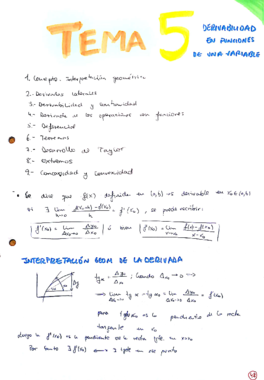 TEMA 5
DERIVABILIDAD
EN FUNCIONES
DE UNA VARIABLE
1. Concepto. Interpretación geométrica
2.- Derivadas laterales
3- Derivabilidad y continuidad
4- Derivada de las operaciones con funciones
5.- Diferencial
6- Teoremas
7.- Desarrollo de Taylor
8- Extremos
9- Concavidad y convexidad
Se dice que f(x) definida en (a,b) es derivable en x₀∈(a,b)
si ∃ lim h→0 f(x₀+h)-f(x₀) / h = f'(x₀), se puede escribir:
f'(x₀) = lim Δx₀→0 Δy₀/Δx₀ ó bien f'(x₀) = lim x→x₀ f(x)-f(x₀) / x-x₀
INTERPRETACIÓN GEOM DE LA DERIVADA
Δy
tg α = Δy₀/Δx₀ ; Cuando Δx₀ → 0 →
lim Δx₀→0 tg α = tg α₀ = lim Δx₀→0 Δy₀/Δx₀ = f'(x₀)
pero tg α₀ es la pendiente de la recta
tangente en x₀
luego la f'(x₀) es la pendiente de la recta tgte en x=x₀
Por tanto ∃ f'(x₀) ⟺ ∃ tgte en ese punto